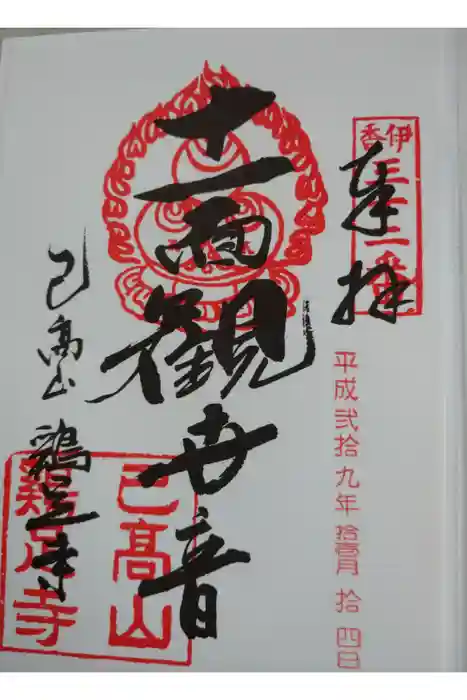 伊香
三十二番
奉拝
平成弐拾九年拾壹月拾四日
十一面観世音
己高山
鶏足寺
己高山
鶏足寺